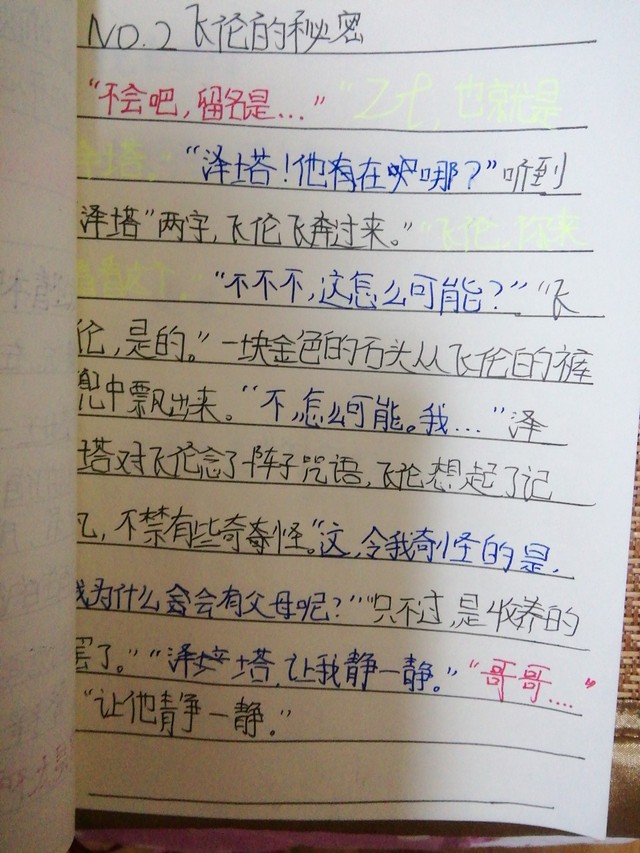 NO.2 飞伦的秘密
“不会吧,留名是...” “Zt,也就是
塔。” “泽塔!他有在哪?”听到
泽塔”两字,飞伦飞奔过来。“飞伦,你来
看看这个。” “不不不,这怎么可能?” “飞
伦,是的。”一块金色的石头从飞伦的裤
兜中飘出来。“不,怎么可能。我...”泽
塔对飞伦念了一阵子咒语,飞伦想起了记
不禁有些奇怪。“这,令我奇怪的是,
我为什么会有父母呢?” “只不过,是收养的
罢了。” “泽塔,让我静一静。” “哥哥....”
“让他静一静。”